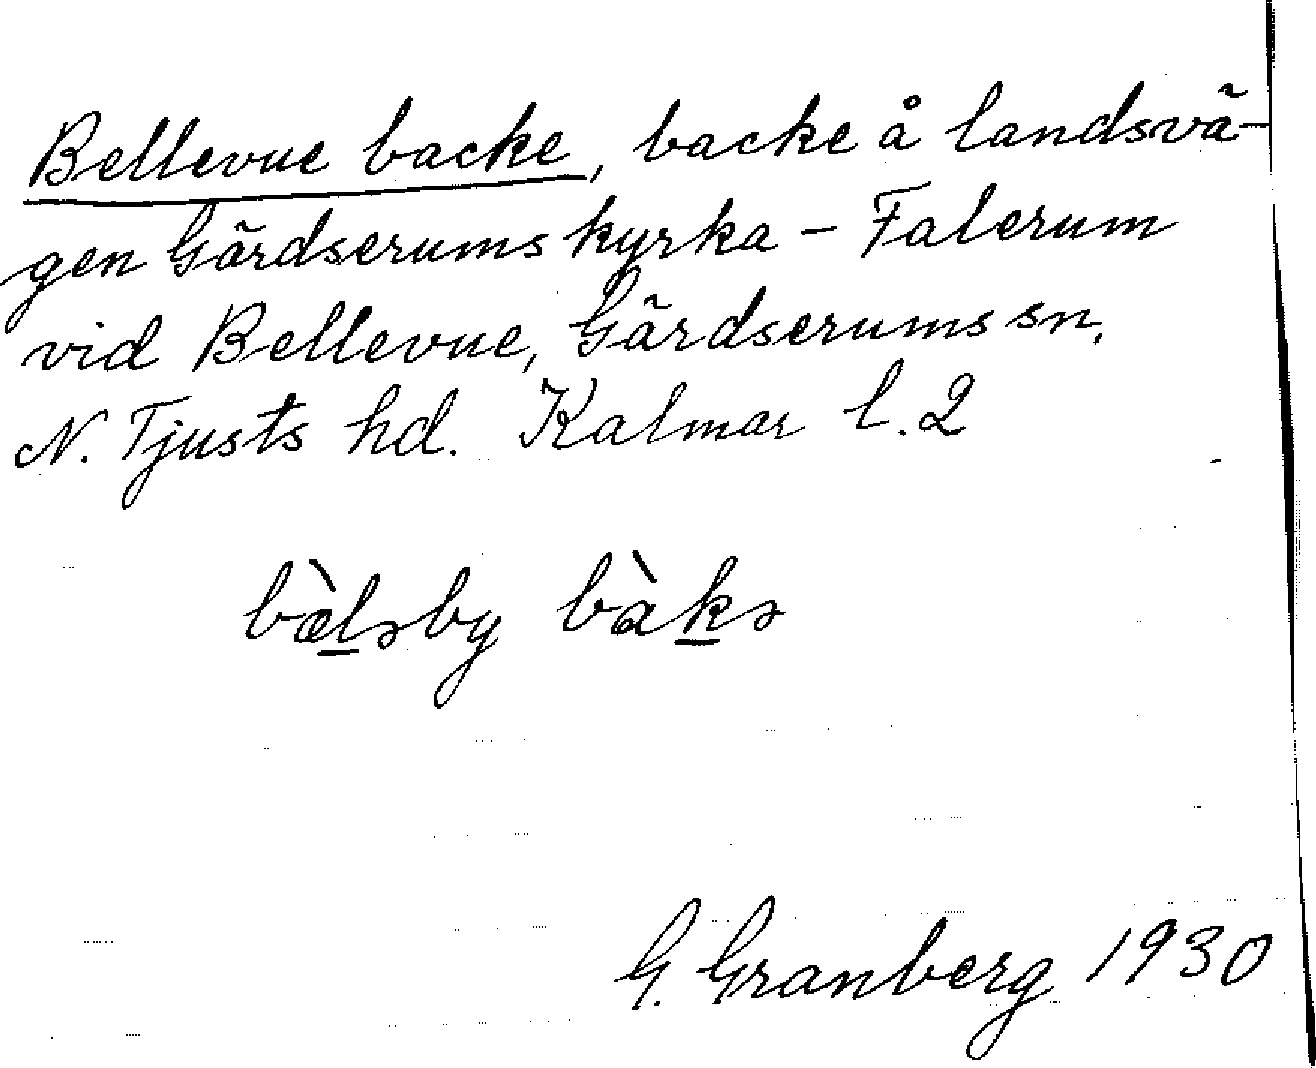 Bellevue backe, backe å landsvä-
gen Gärdserums kyrka – Falerum
vid Bellevue, Gärdserums sn.
N. Tjusts hd. Kalmar l. 2
bæ̀lsby bàkə
G. Granberg 1930